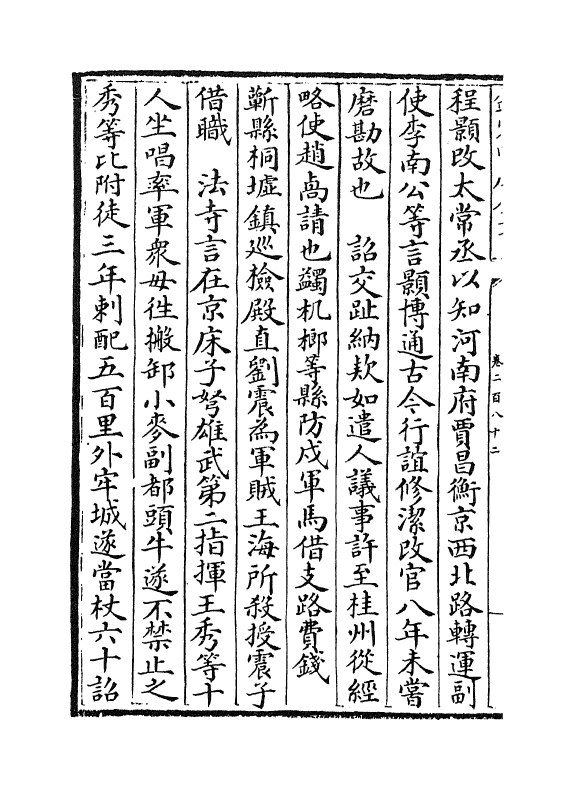 卷二百八十二
程顥改太常丞以知河南府賈昌衡京西北路轉運副
使李南公等言顥博通古今行誼修潔改官八年未嘗
磨勘故也　詔交趾納欵如遣人議事許至桂州從經
略使趙卨請也蠲机榔等縣防戍軍馬借支路費錢
蘄縣桐墟鎮巡檢殿直劉震為軍賊王海所殺授震子
借職　法寺言在京床子弩雄武第二指揮王秀等十
人坐唱率軍衆毋徃搬卸小麥副都頭牛遂不禁止之
秀等比附徒三年刺配五百里外牢城遂當杖六十詔